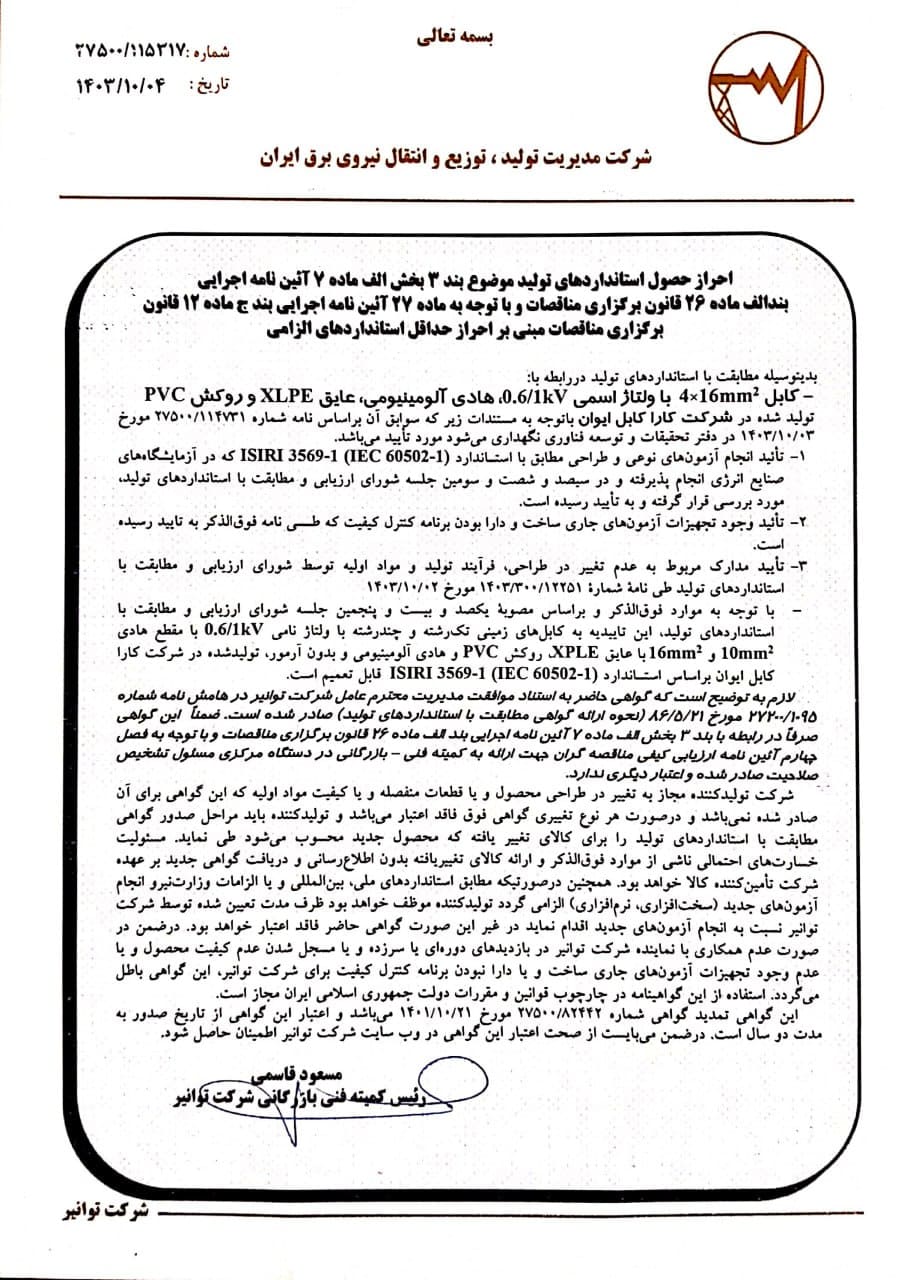 بسمه تعالی
شماره :۲۷۵۰۰/۱۱۵۳۱۷
تاریخ : ۱۴۰۳/۱۰/۰۴
شرکت مدیریت تولید ، توزیع و انتقال نیروی برق ایران
احراز حصول استانداردهای تولید موضوع بند ۳ بخش الف ماده ۷ آئین نامه اجرایی
بندالف ماده ۲۶ قانون برگزاری مناقصات و با توجه به ماده ۲۷ آئین نامه اجرایی بند ج ماده ۱۲ قانون
برگزاری مناقصات مبنی بر احراز حداقل استانداردهای الزامی
بدینوسیله مطابقت با استانداردهای تولید دررابطه با:
– کابل 4×16mm² با ولتاژ اسمی 0.6/1kV، هادی آلومینیومی، عایق XLPE و روکش PVC
تولید شده در شرکت کارا کابل ایوان باتوجه به مستندات زیر که سوابق آن براساس نامه شماره ۲۷۵۰۰/۱۱۴۷۳۱ مورخ
۱۴۰۳/۱۰/۰۳ در دفتر تحقیقات و توسعه فناوری نگهداری می‌شود مورد تأیید می‌باشد.
۱– تأئید انجام آزمون‌های نوعی و طراحی مطابق با استاندارد ISIRI 3569-1 (IEC 60502-1) که در آزمایشگاه‌های
صنایع انرژی انجام پذیرفته و در سیصد و شصت و سومین جلسه شورای ارزیابی و مطابقت با استانداردهای تولید،
مورد بررسی قرار گرفته و به تأیید رسیده است.
۲– تأئید وجود تجهیزات آزمون‌های جاری ساخت و دارا بودن برنامه کنترل کیفیت که طی نامه فوق‌الذکر به تایید رسیده
است.
۳– تأیید مدارک مربوط به عدم تغییر در طراحی، فرآیند تولید و مواد اولیه توسط شورای ارزیابی و مطابقت با
استانداردهای تولید طی نامهٔ شمارهٔ ۱۴۰۳/۳۰۰/۱۲۲۵۱ مورخ ۱۴۰۳/۱۰/۰۲
– با توجه به موارد فوق‌الذکر و براساس مصوبهٔ یکصد و بیست و پنجمین جلسه شورای ارزیابی و مطابقت با
استانداردهای تولید، این تاییدیه به کابل‌های زمینی تک‌رشته و چندرشته با ولتاژ نامی 0.6/1kV با مقطع هادی
10mm² و 16mm² با عایق XPLE، روکش PVC و هادی آلومینیومی و بدون آرمور، تولیدشده در شرکت کارا
کابل ایوان براساس استاندارد ISIRI 3569-1 (IEC 60502-1) قابل تعمیم است.
لازم به توضیح است که گواهی حاضر به استناد موافقت مدیریت محترم عامل شرکت توانیر در هامش نامه شماره
۲۷۲۰۰/۱۰۹۵ مورخ ۸۶/۵/۲۱ (نحوه ارائه گواهی مطابقت با استانداردهای تولید) صادر شده است. ضمناً این گواهی
صرفاً در رابطه با بند ۳ بخش الف ماده ۷ آئین نامه اجرایی بند الف ماده ۲۶ قانون برگزاری مناقصات و با توجه به فصل
چهارم آئین نامه ارزیابی کیفی مناقصه گران جهت ارائه به کمیته فنی – بازرگانی در دستگاه مرکزی مسئول تشخیص
صلاحیت صادر شده و اعتبار دیگری ندارد.
شرکت تولیدکننده مجاز به تغییر در طراحی محصول و یا قطعات منفصله و یا کیفیت مواد اولیه که این گواهی برای آن
صادر شده نمی‌باشد و درصورت هر نوع تغییری گواهی فوق فاقد اعتبار می‌باشد و تولیدکننده باید مراحل صدور گواهی
مطابقت با استانداردهای تولید را برای کالای تغییر یافته که محصول جدید محسوب می‌شود طی نماید. مسئولیت
خسارت‌های احتمالی ناشی از موارد فوق‌الذکر و ارائه کالای تغییریافته بدون اطلاع‌رسانی و دریافت گواهی جدید بر عهده
شرکت تأمین‌کننده کالا خواهد بود. همچنین درصورتیکه مطابق استانداردهای ملی، بین‌المللی و یا الزامات وزارت‌نیرو انجام
آزمون‌های جدید (سخت‌افزاری، نرم‌افزاری) الزامی گردد تولیدکننده موظف خواهد بود ظرف مدت تعیین شده توسط شرکت
توانیر نسبت به انجام آزمون‌های جدید اقدام نماید در غیر این صورت گواهی حاضر فاقد اعتبار خواهد بود. درضمن در
صورت عدم همکاری با نماینده شرکت توانیر در بازدیدهای دوره‌ای یا سرزده و یا مسجل شدن عدم کیفیت محصول و یا
عدم وجود تجهیزات آزمون‌های جاری ساخت و یا دارا نبودن برنامه کنترل کیفیت برای شرکت توانیر، این گواهی باطل
می‌گردد. استفاده از این گواهینامه در چارچوب قوانین و مقررات دولت جمهوری اسلامی ایران مجاز است.
این گواهی تمدید گواهی شماره ۲۷۵۰۰/۸۲۴۴۲ مورخ ۱۴۰۱/۱۰/۲۱ می‌باشد و اعتبار این گواهی از تاریخ صدور به
مدت دو سال است. درضمن می‌بایست از صحت اعتبار این گواهی در وب سایت شرکت توانیر اطمینان حاصل شود.
مسعود قاسمی
رئیس کمیته فنی بازرگانی شرکت توانیر
شرکت توانیر